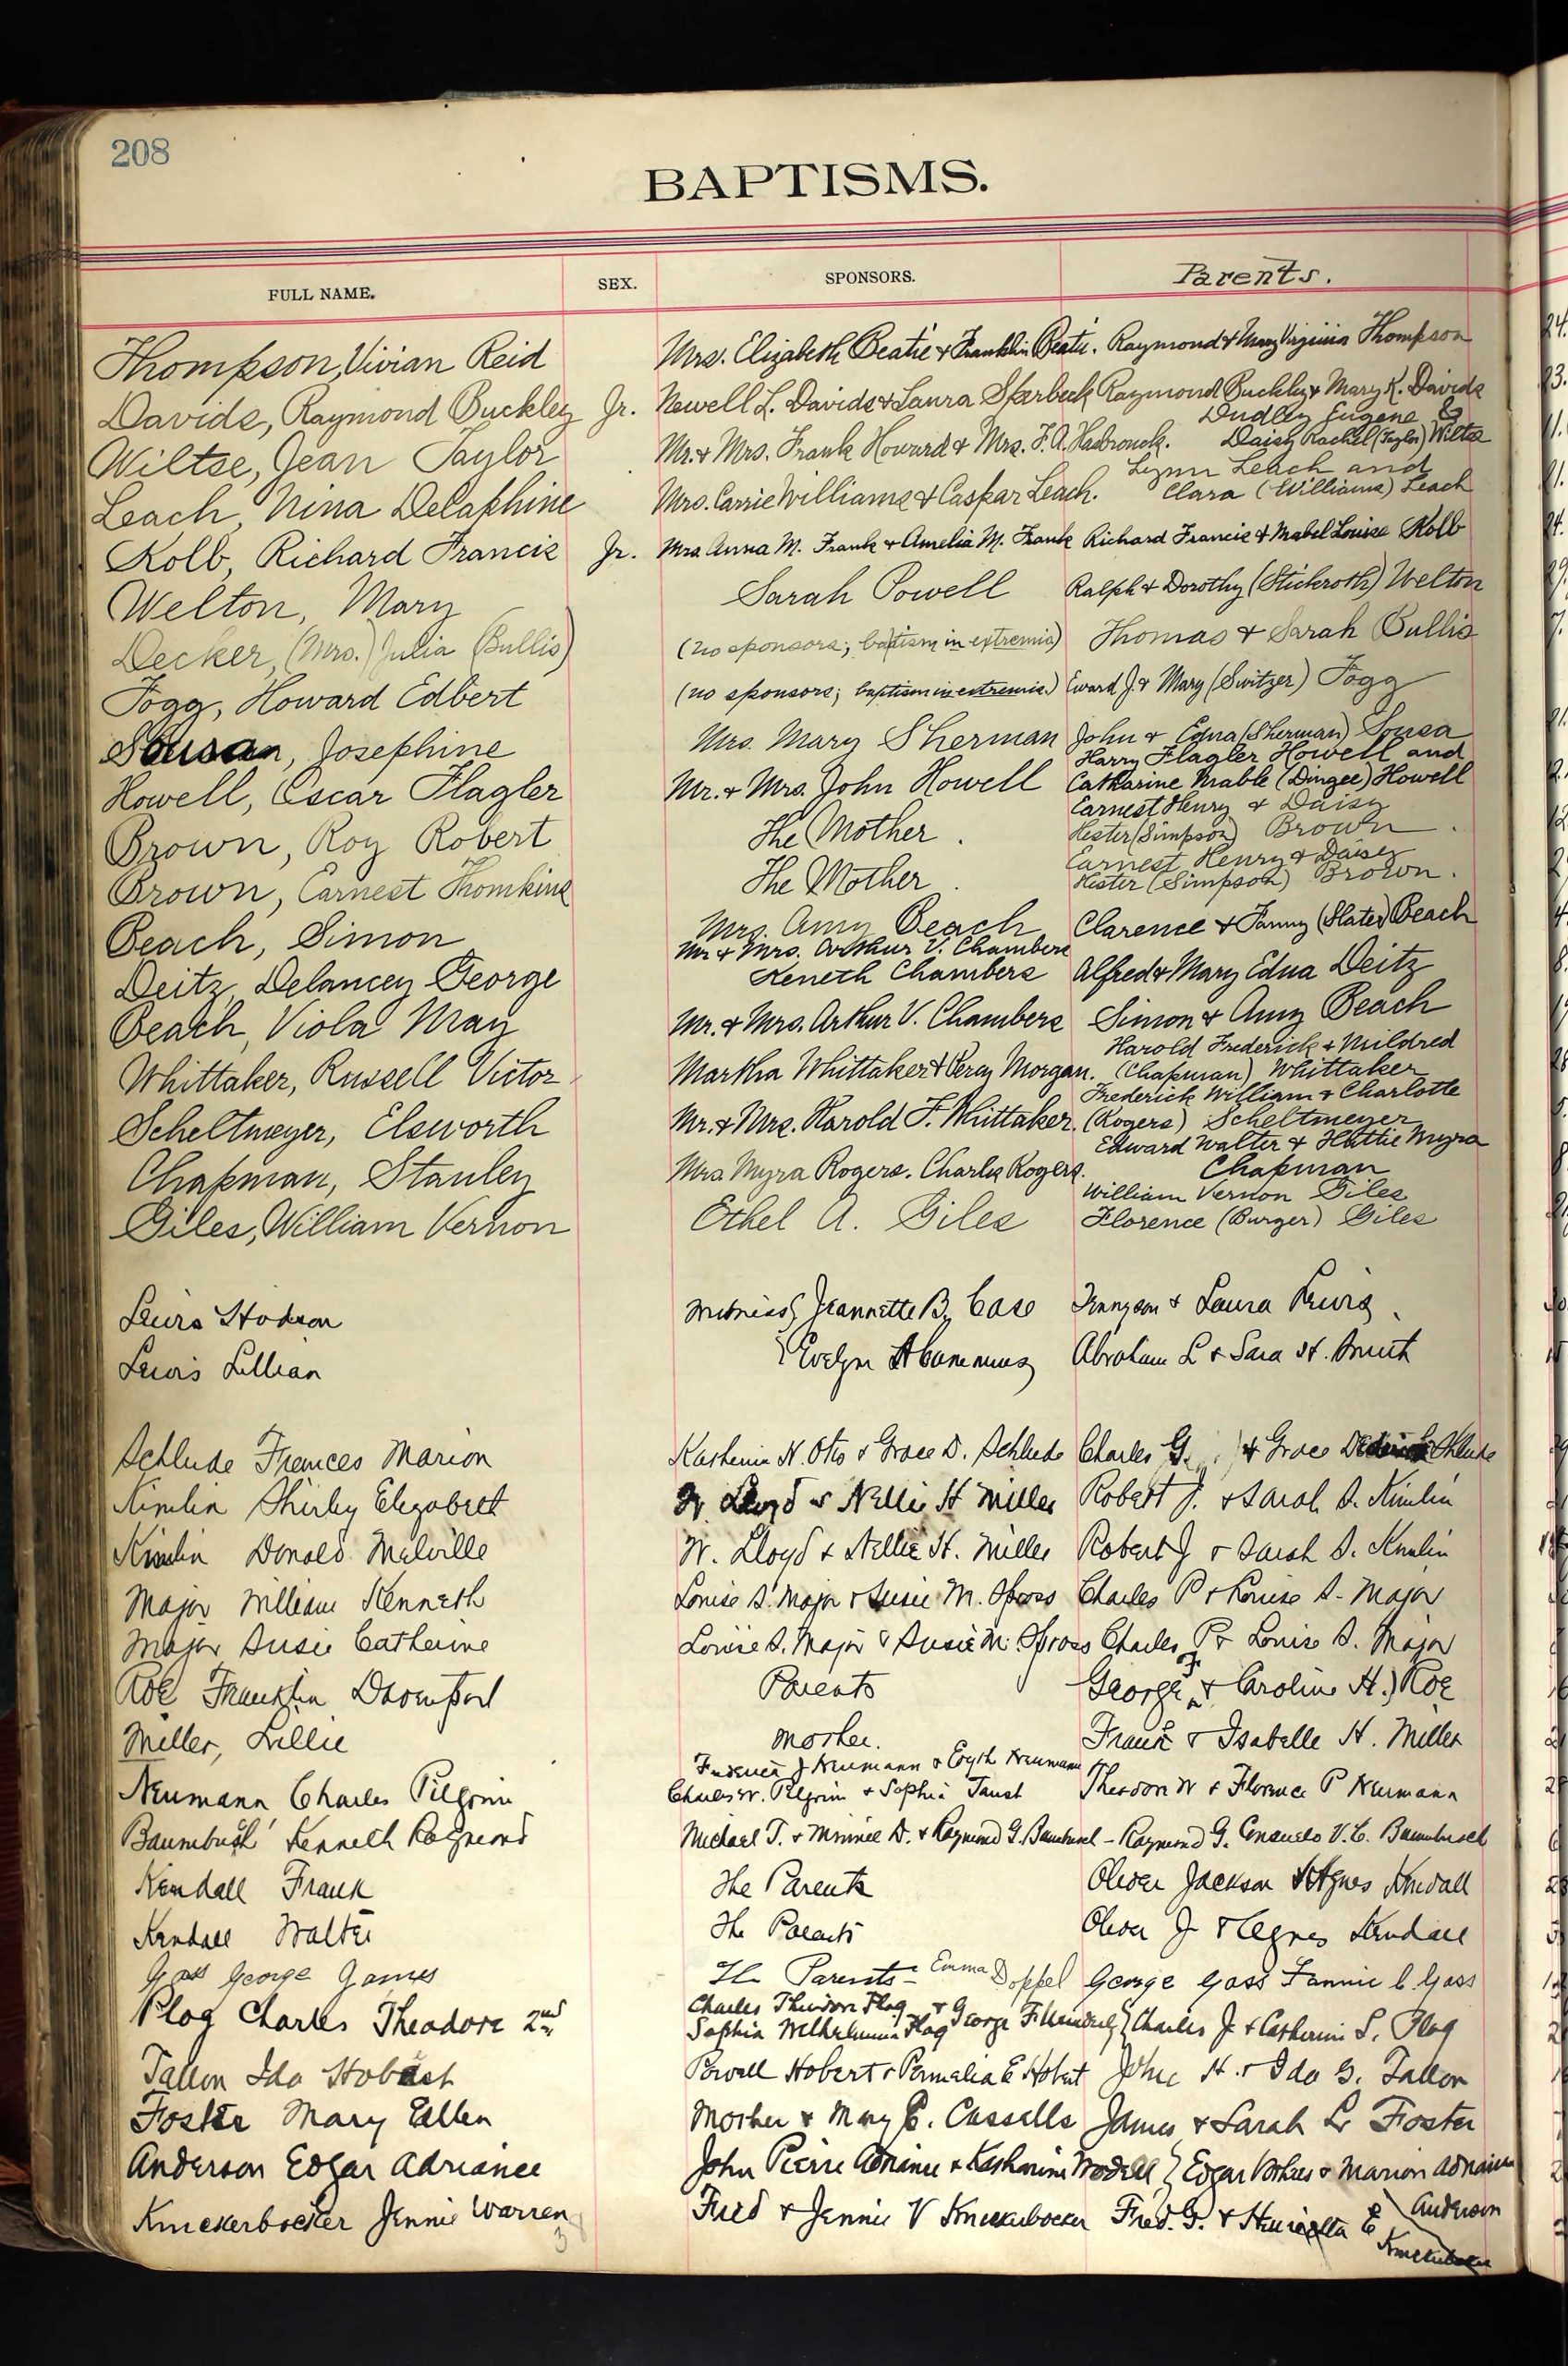 208
BAPTISMS.
FULL NAME. SEX. SPONSORS. Parents.
Thompson, Vivian Reid Mrs. Elizabeth Beatie & Franklin Beatie. Raymond & Mary Virginia Thompson
Davids, Raymond Buckley Jr. Newell L. Davids & Laura Skarbeck Raymond Buckley & Mary K. Davids
Dudley Eugene &
Wiltse, Jean Taylor Mr. & Mrs. Frank Howard & Mrs. F. A. Hasbrouck. Daisy Rachel (Taylor) Wiltse
Lynn Leach and
Leach, Nina Delaphine Mrs. Carrie Williams & Caspar Leach. Clara (Williams) Leach
Kolb, Richard Francis Jr. Mrs. Anna M. Frank & Amelia M. Frank Richard Francis & Mabel Louise Kolb
Welton, Mary Sarah Powell Ralph & Dorothy (Stickroth) Welton
Decker, (Mrs.) Julia (Bullis) (no sponsors; baptism in extremis) Thomas & Sarah Bullis
Fogg, Howard Edbert (no sponsors; baptism in extremis.) Eward J. & Mary (Switzer) Fogg
Sousa, Josephine Mrs. Mary Sherman John & Edna (Sherman) Sousa
Harry Flagler Howell and
Howell, Oscar Flagler Mr. & Mrs. John Howell Catharine Mable (Dingee) Howell
Earnest Henry & Daisy
Brown, Roy Robert The Mother. Hester (Simpson) Brown.
Earnest Henry & Daisey
Brown, Earnest Thomkins The Mother. Hester (Simpson) Brown.
Beach, Simon Mrs. Amy Beach Clarence & Fanny (Slater) Beach
Mr. & Mrs. Arthur V. Chambers
Deitz, Delancey George Keneth Chambers Alfred & Mary Edna Deitz
Beach, Viola May Mr. & Mrs. Arthur V. Chambers Simon & Amy Beach
Harold Frederick & Mildred
Whittaker, Russell Victor Martha Whittaker & Percy Morgan. (Chapman) Whittaker
Frederick William & Charlotte
Scheltmeyer, Elsworth Mr. & Mrs. Harold F. Whittaker. (Rogers) Scheltmeyer
Edward Walter & Hattie Myra
Chapman, Stanley Mrs. Myra Rogers. Charles Rogers. Chapman
William Vernon Giles
Giles, William Vernon Ethel A. Giles Florence (Burger) Giles
Lewis Hudson Witness { Jeannette B. Case & Laura Lewis
Lewis Lillian Evelyn Abraham L & Sara H. Smith
Schlude Frances Marion N. Otis & Grace D. Schlude Charles G. & Grace Schlude
Kimlin Shirley Elizabeth W. Lloyd & Nellie H Miller Robert J. & Sarah S. Kimlin
Kimlin Donald Melville W. Lloyd & Nellie H. Miller Robert J & Sarah S. Kimlin
Major William Kenneth Louise S. Major & Susie M. Spross Charles P & Louise S. Major
Major Susie Catherine Louise S. Major & Susie M. Spross Charles P & Louise S. Major
Roe Franklin Davenport Parents George F. & Caroline H. Roe
Miller, Lillie Mother. Frank & Isabelle H. Miller
J Neumann & Edyth Neumann
Neumann Charles Pilgrim Charles W. Pilgrim & Sophia Taust Theodore W & Florence P Neumann
Baumbusch Kenneth Raymond Michael T. & Minnie D. & Raymond G. Baumbusch - Raymond G. Consuelo V. C. Baumbusch
Kendall Frank The Parents Oliver Jackson & Agnes Kendall
Kendall Walter The Parents Oliver J & Agnes Kendall
Gass George James The Parents - Emma Doppel George Gass Fannie C. Gass
Charles Theodore Plog &
Plog Charles Theodore 2nd Sophia Wilhelmina Plog George F. } Charles J. & Catherine S. Plog
Tallon Ida Hobart Powell Hobert & Permelia E Hobert John H. & Ida G. Tallon
Foster Mary Ellen Mother & Mary E. Cassells James & Sarah L Foster
Anderson Edgar Adriance John Pierre Adriance & Katharine Wodell } Edgar & Marion Adriance
Anderson
Knickerbocker Jennie Warren Fred & Jennie V Knickerbocker Fred. G. & Henrietta E
Knickerbocker